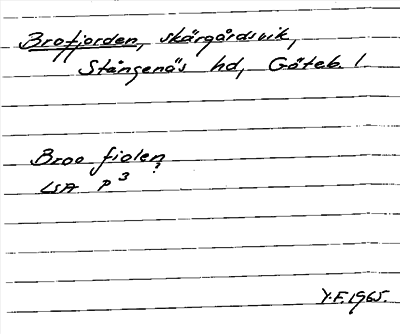 Brofjorden, skärgårdsvik,
Stångenäs hd, Göteb. l.
Broo fiolen
?
LSA P³
Y.F. 1965.